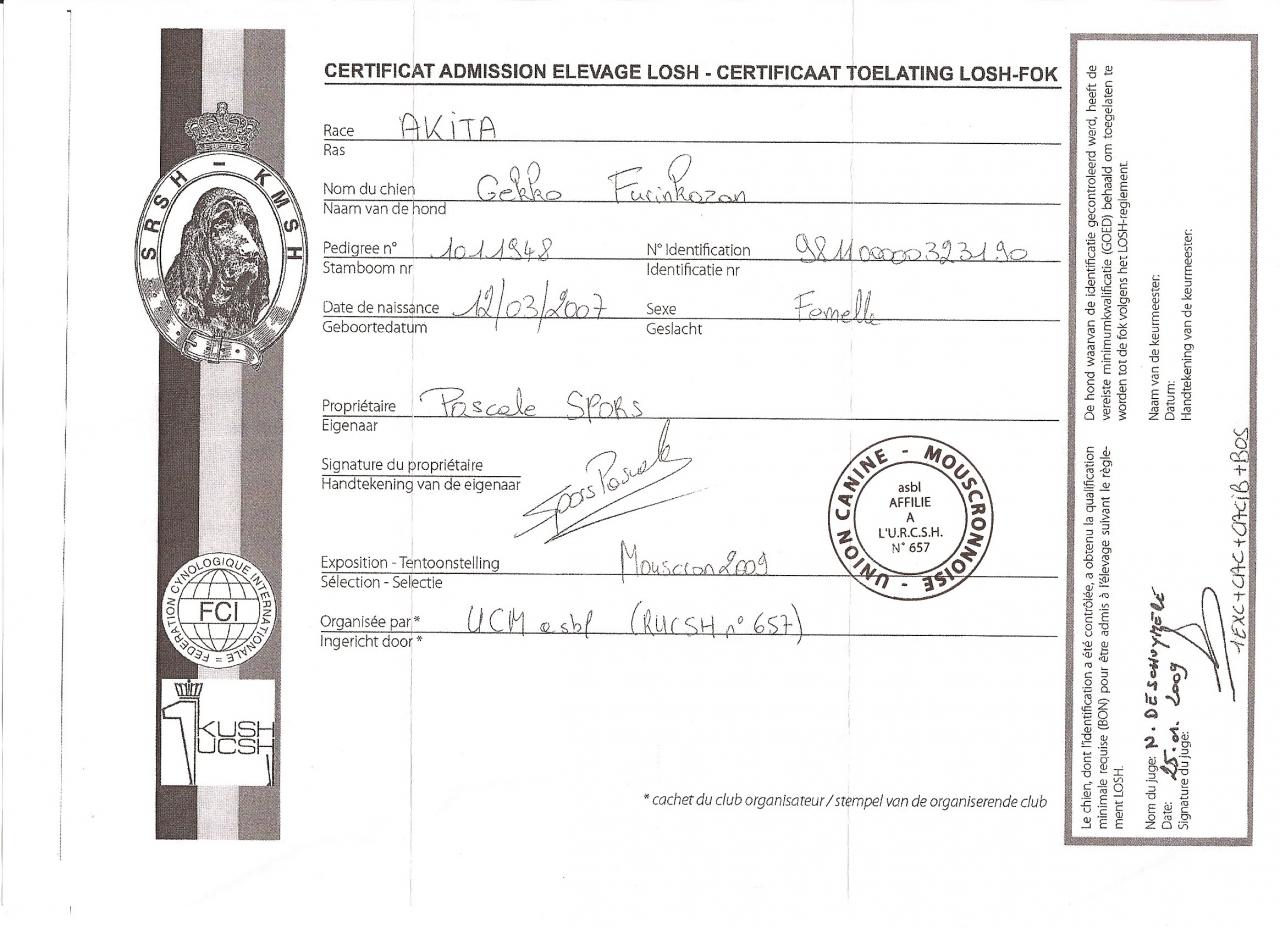 CERTIFICAT ADMISSION ELEVAGE LOSH - CERTIFICAAT TOELATING LOSH-FOK
Race AKiTA
Ras
Nom du chien Gekko Furinkazan
Naam van de hond
Pedigree n° 1011948 N° Identification 981100000323190
Stamboom nr Identificatie nr
Date de naissance 12/03/2007 Sexe Femelle
Geboortedatum Geslacht
Propriétaire Pascale SPORS
Eigenaar
Signature du propriétaire
Handtekening van de eigenaar
Spors Pascale
Exposition - Tentoonstelling Mouscron 2009
Sélection - Selectie
Organisée par * UCM asbl (RUCSH n° 657)
Ingericht door *
* cachet du club organisateur / stempel van de organiserende club
UNION CANINE - MOUSCRONNOISE -
asbl
AFFILIE
A
L'U.R.C.S.H.
N° 657
SRSH - KMSH
FEDERATION CYNOLOGIQUE INTERNATIONALE =
FCI
KUSH
UCSH
De hond waarvan de identificatie gecontroleerd werd, heeft de
vereiste minimumkwalificatie (GOED) behaald om toegelaten te
worden tot de fok volgens het LOSH-reglement.
Naam van de keurmeester:
Datum:
Handtekening van de keurmeester:
Le chien, dont l'identification a été contrôlée, a obtenu la qualification
minimale requise (BON) pour être admis à l'élevage suivant le règle-
ment LOSH.
Nom du juge: N. DESCHUYMERE
Date: 25.01.2009
Signature du juge:
1EXC+CAC+CACiB+BOS